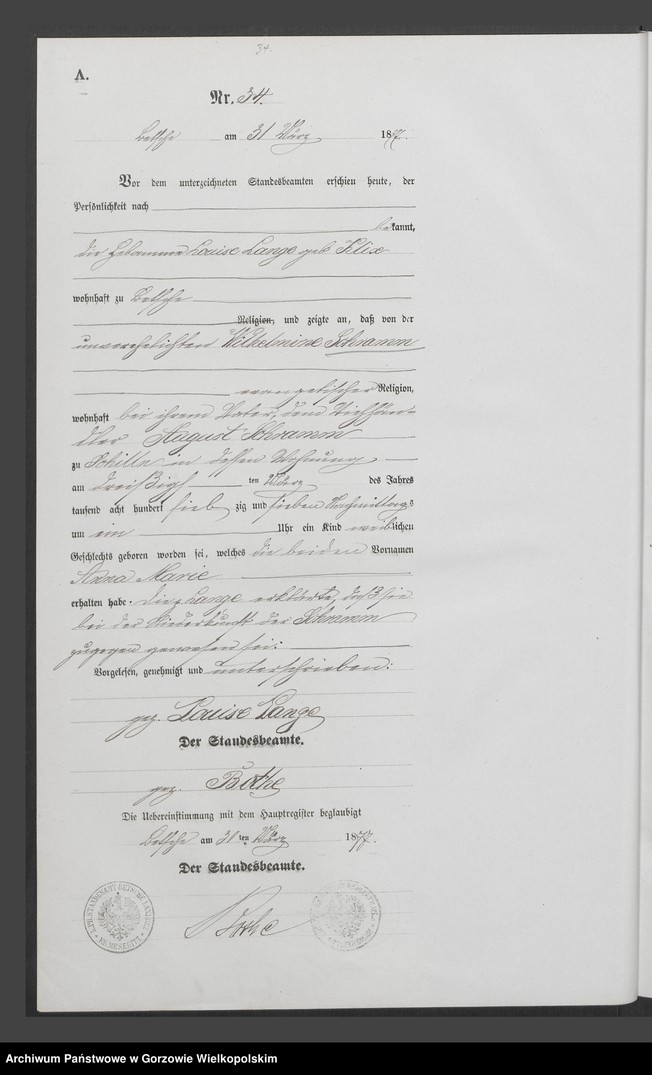 34.
A.
Nr. 34.
Betsche am 31 März 1877.
Vor dem unterzeichneten Standesbeamten erschien heute, der
Persönlichkeit nach
bekannt,
die Hebamme Louise Lange geb Klix
wohnhaft zu Betsche
Religion, und zeigte an, daß von der
unverehelichten Wilhelmine Schramm
evangelischer Religion,
wohnhaft bei ihrem Vater, dem Viehhän-
dler August Schramm
zu Schilln in dessen Wohnung
am dreißigs ten März des Jahres
tausend acht hundert sieb zig und sieben Nachmittags
um ein Uhr ein Kind weiblichen
Geschlechts geboren worden sei, welches die beiden Vornamen
Anna Marie
erhalten habe. Die Lange erklärte, daß sie
bei der Niederkunft der Schramm
zugegen gewesen sei:
Vorgelesen, genehmigt und unterschrieben:
gez. Louise Lange
Der Standesbeamte.
gez. Bothe
Die Uebereinstimmung mit dem Hauptregister beglaubigt
Betsche am 31 ten März 1877.
Der Standesbeamte.
Bothe
Archiwum Państwowe w Gorzowie Wielkopolskim